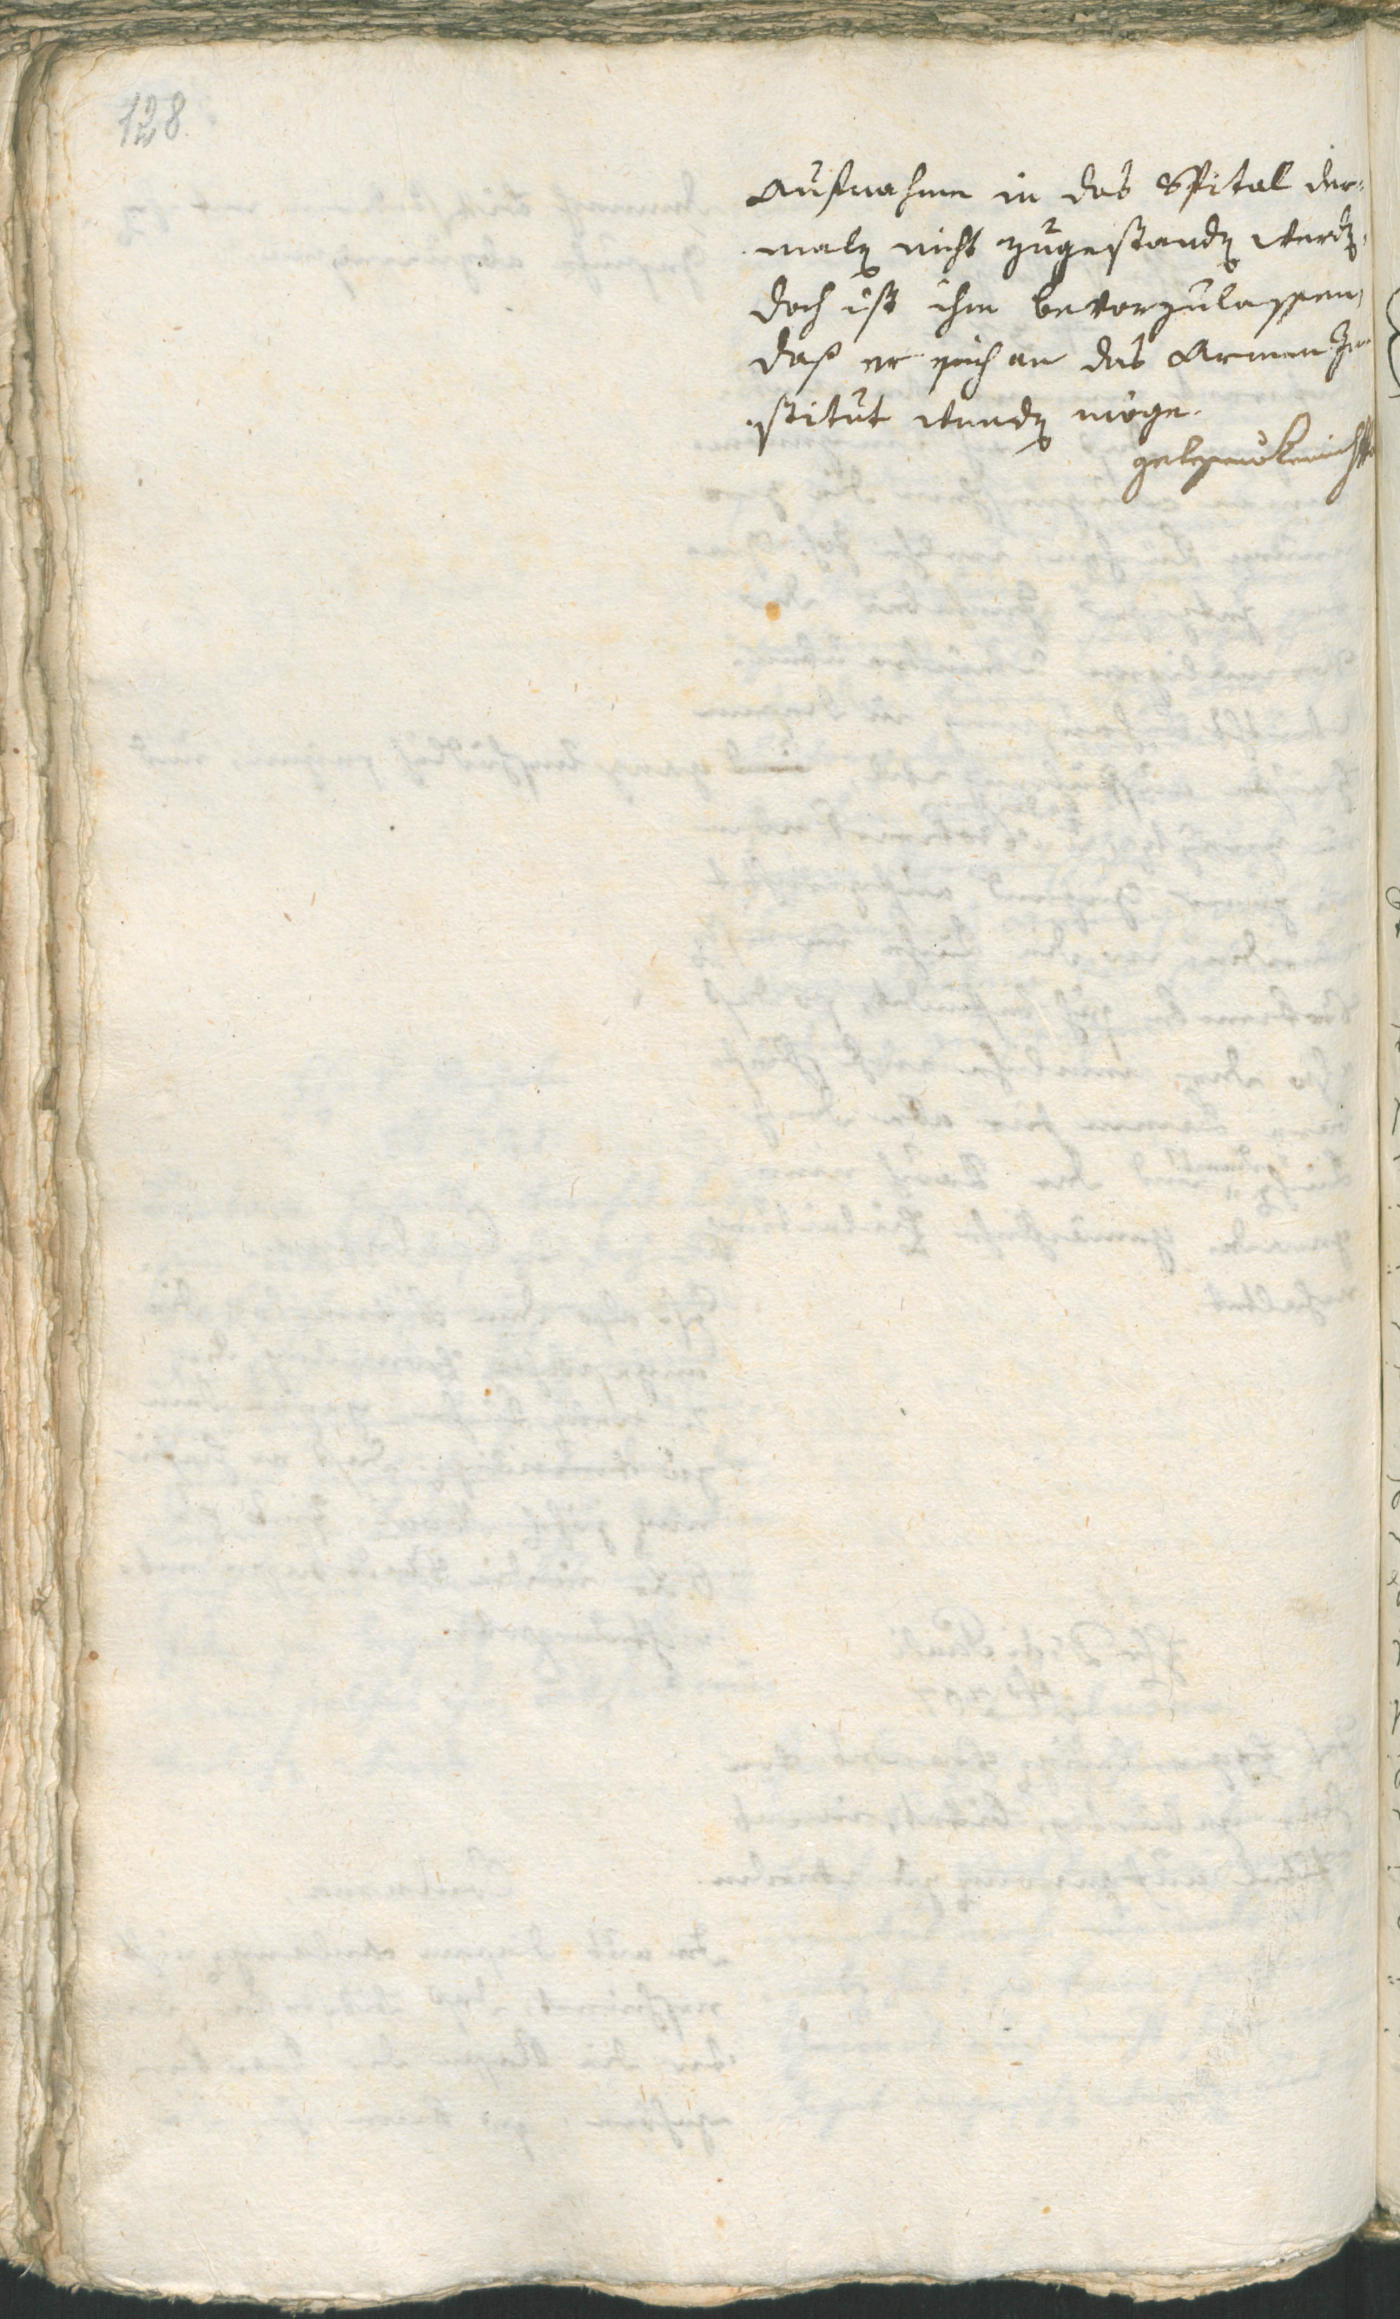 128.
Aufnahme in das Spital der-
malen nicht zugestanden werden,
doch ist ihm bevorzulassen,
daß er sich an das Armen In-
stitut wenden möge.